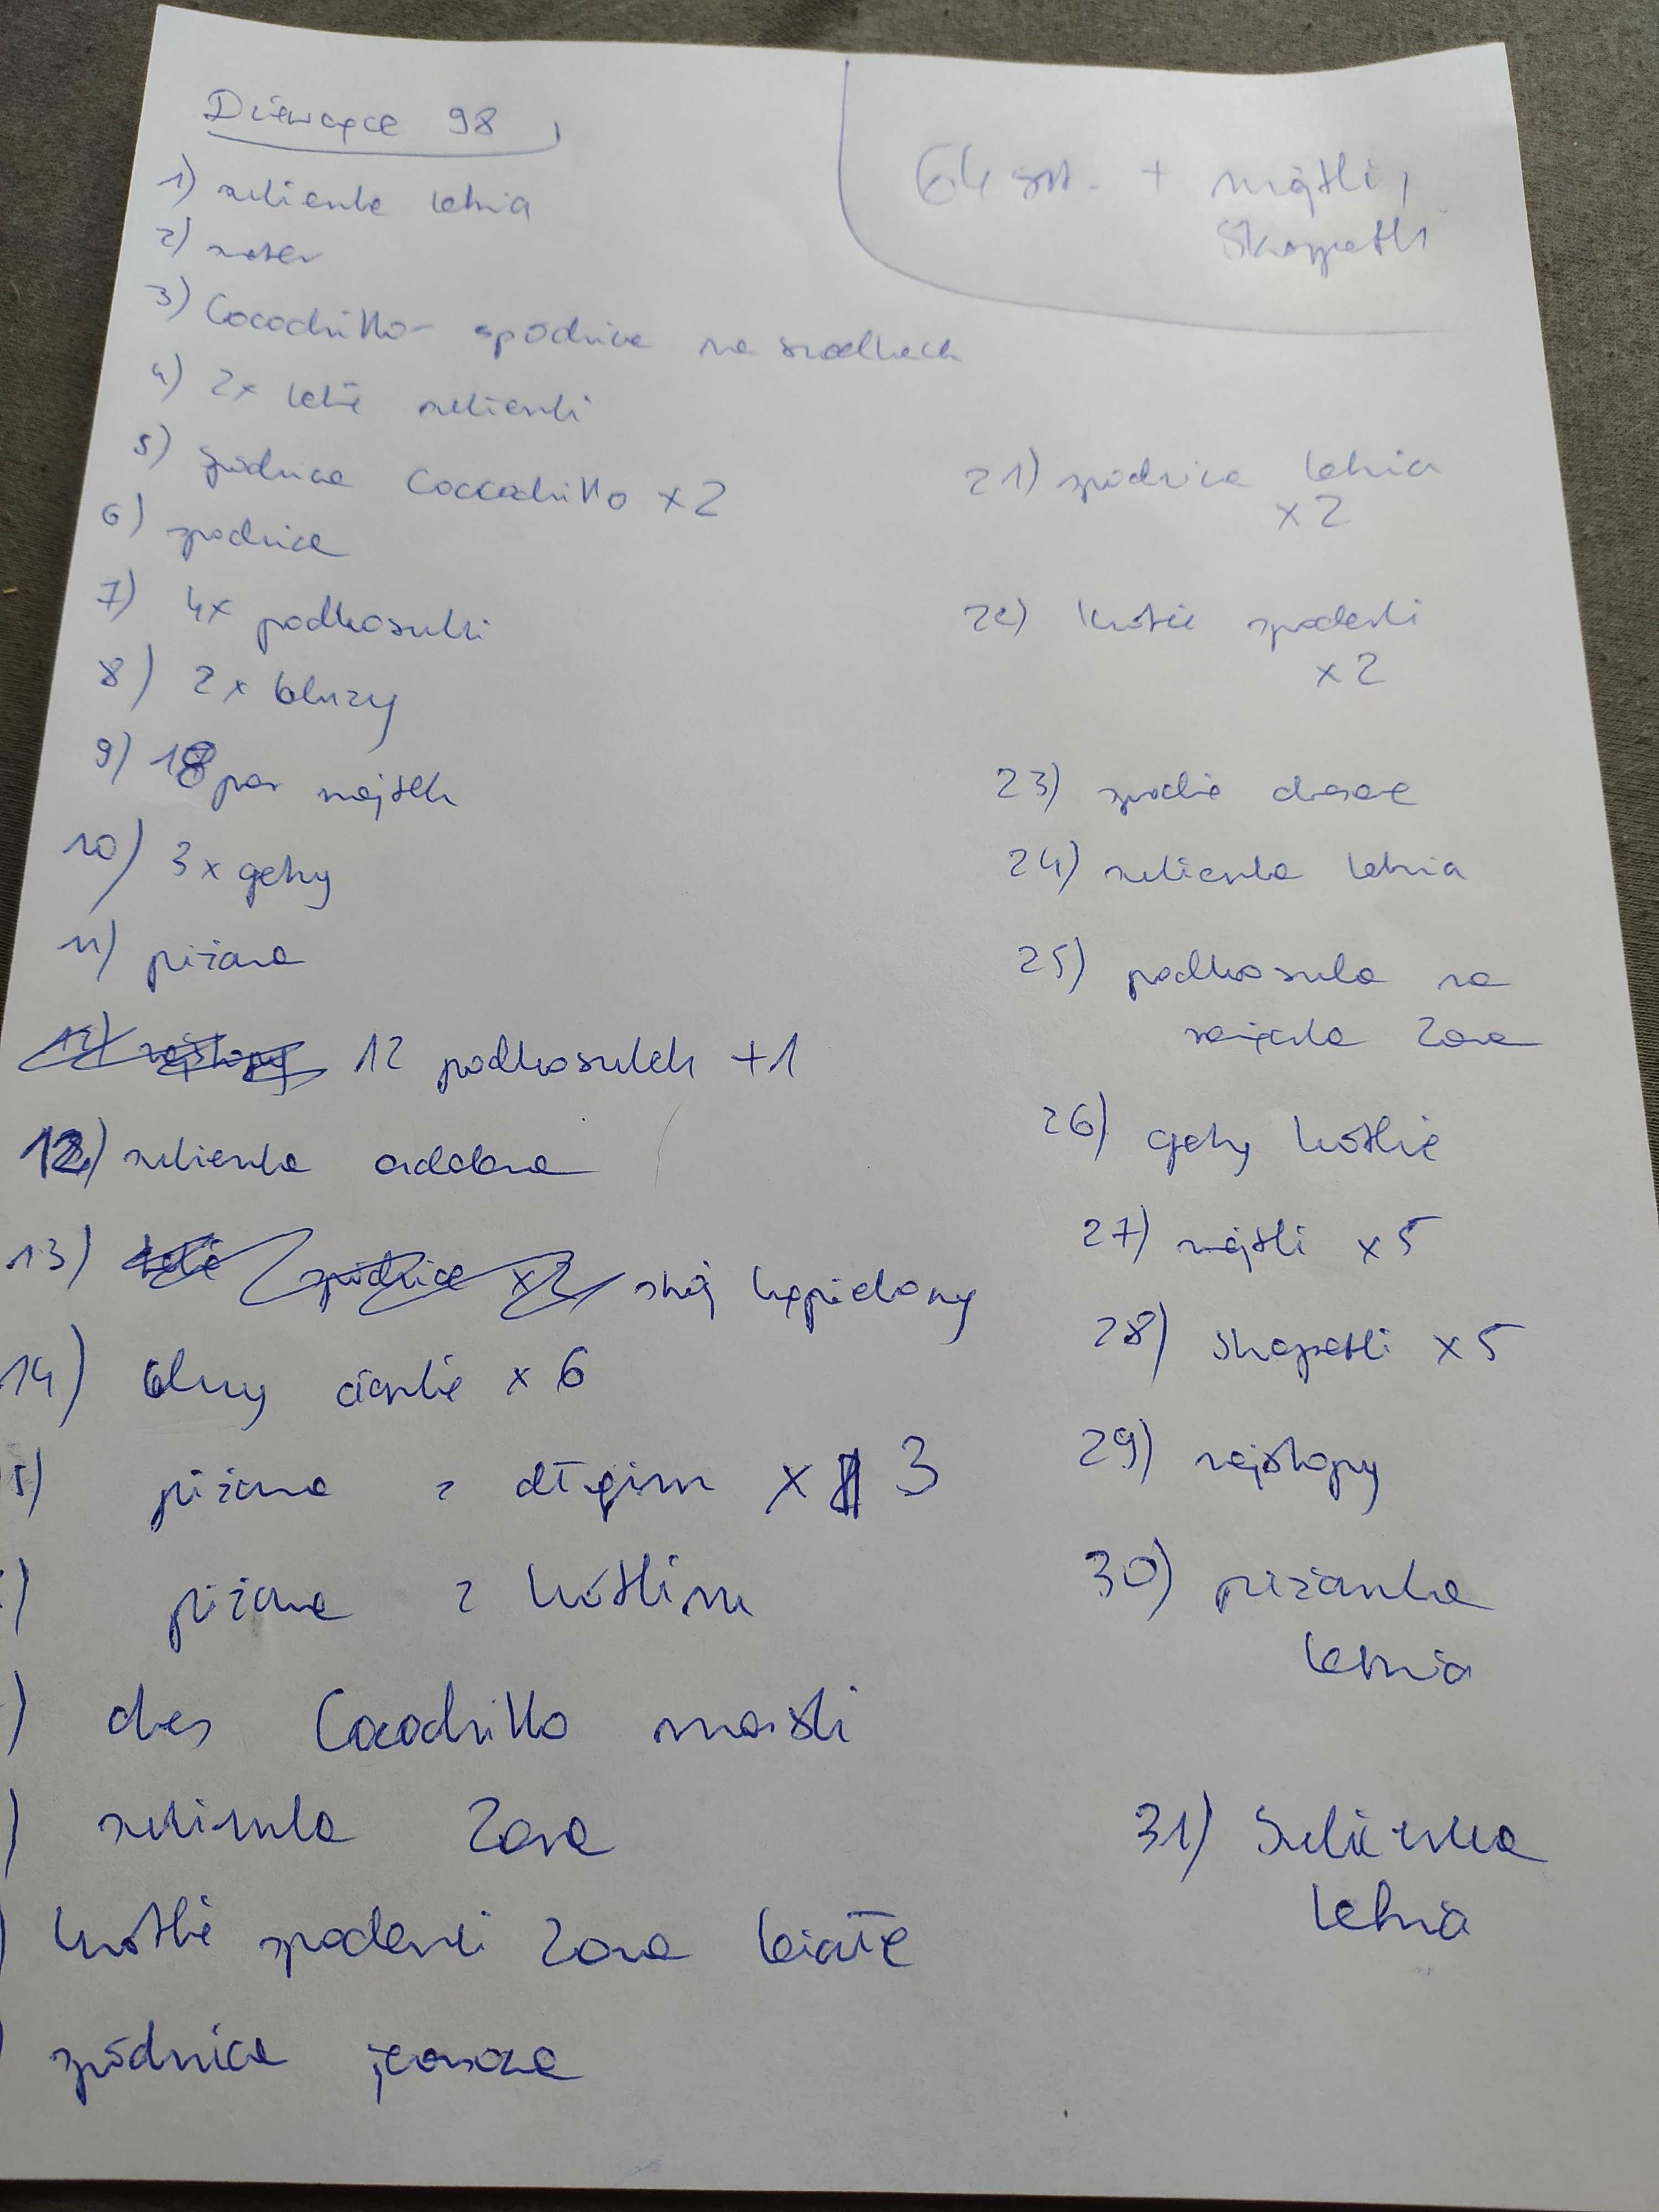 Dziewczęce 98
64 szt. + majtki,
skarpetki
1) sukienka letnia
2)
3) Cocodrillo - spódnica na szelkach
4) 2x letnie sukienki
5) spódnica Coccodrillo x2
6) spodnica
7) 4x podkoszulki
8) 2x bluzy
9) 18 par majtek
10) 3x getry
11) piżama
12) rajstopy 12 podkoszulek +1
12) sukienka
13) letnie spódnice x2 strój kąpielowy
14) bluzy cienkie x 6
5) piżama z długim x 3
) piżama z krótkim
) dres Cocodrillo
) sukienka Zara
) krótkie spodenki Zara białe
) spódnica jeansowa
21) spódnica letnia
x2
22) krótkie spodenki
x2
23) spodnie dresowe
24) sukienka letnia
25) podkoszulka na
Zara
26) getry krótkie
27) majtki x5
28) skarpetki x5
29) rajstopy
30) piżamka
letnia
31) Sukienka
letnia